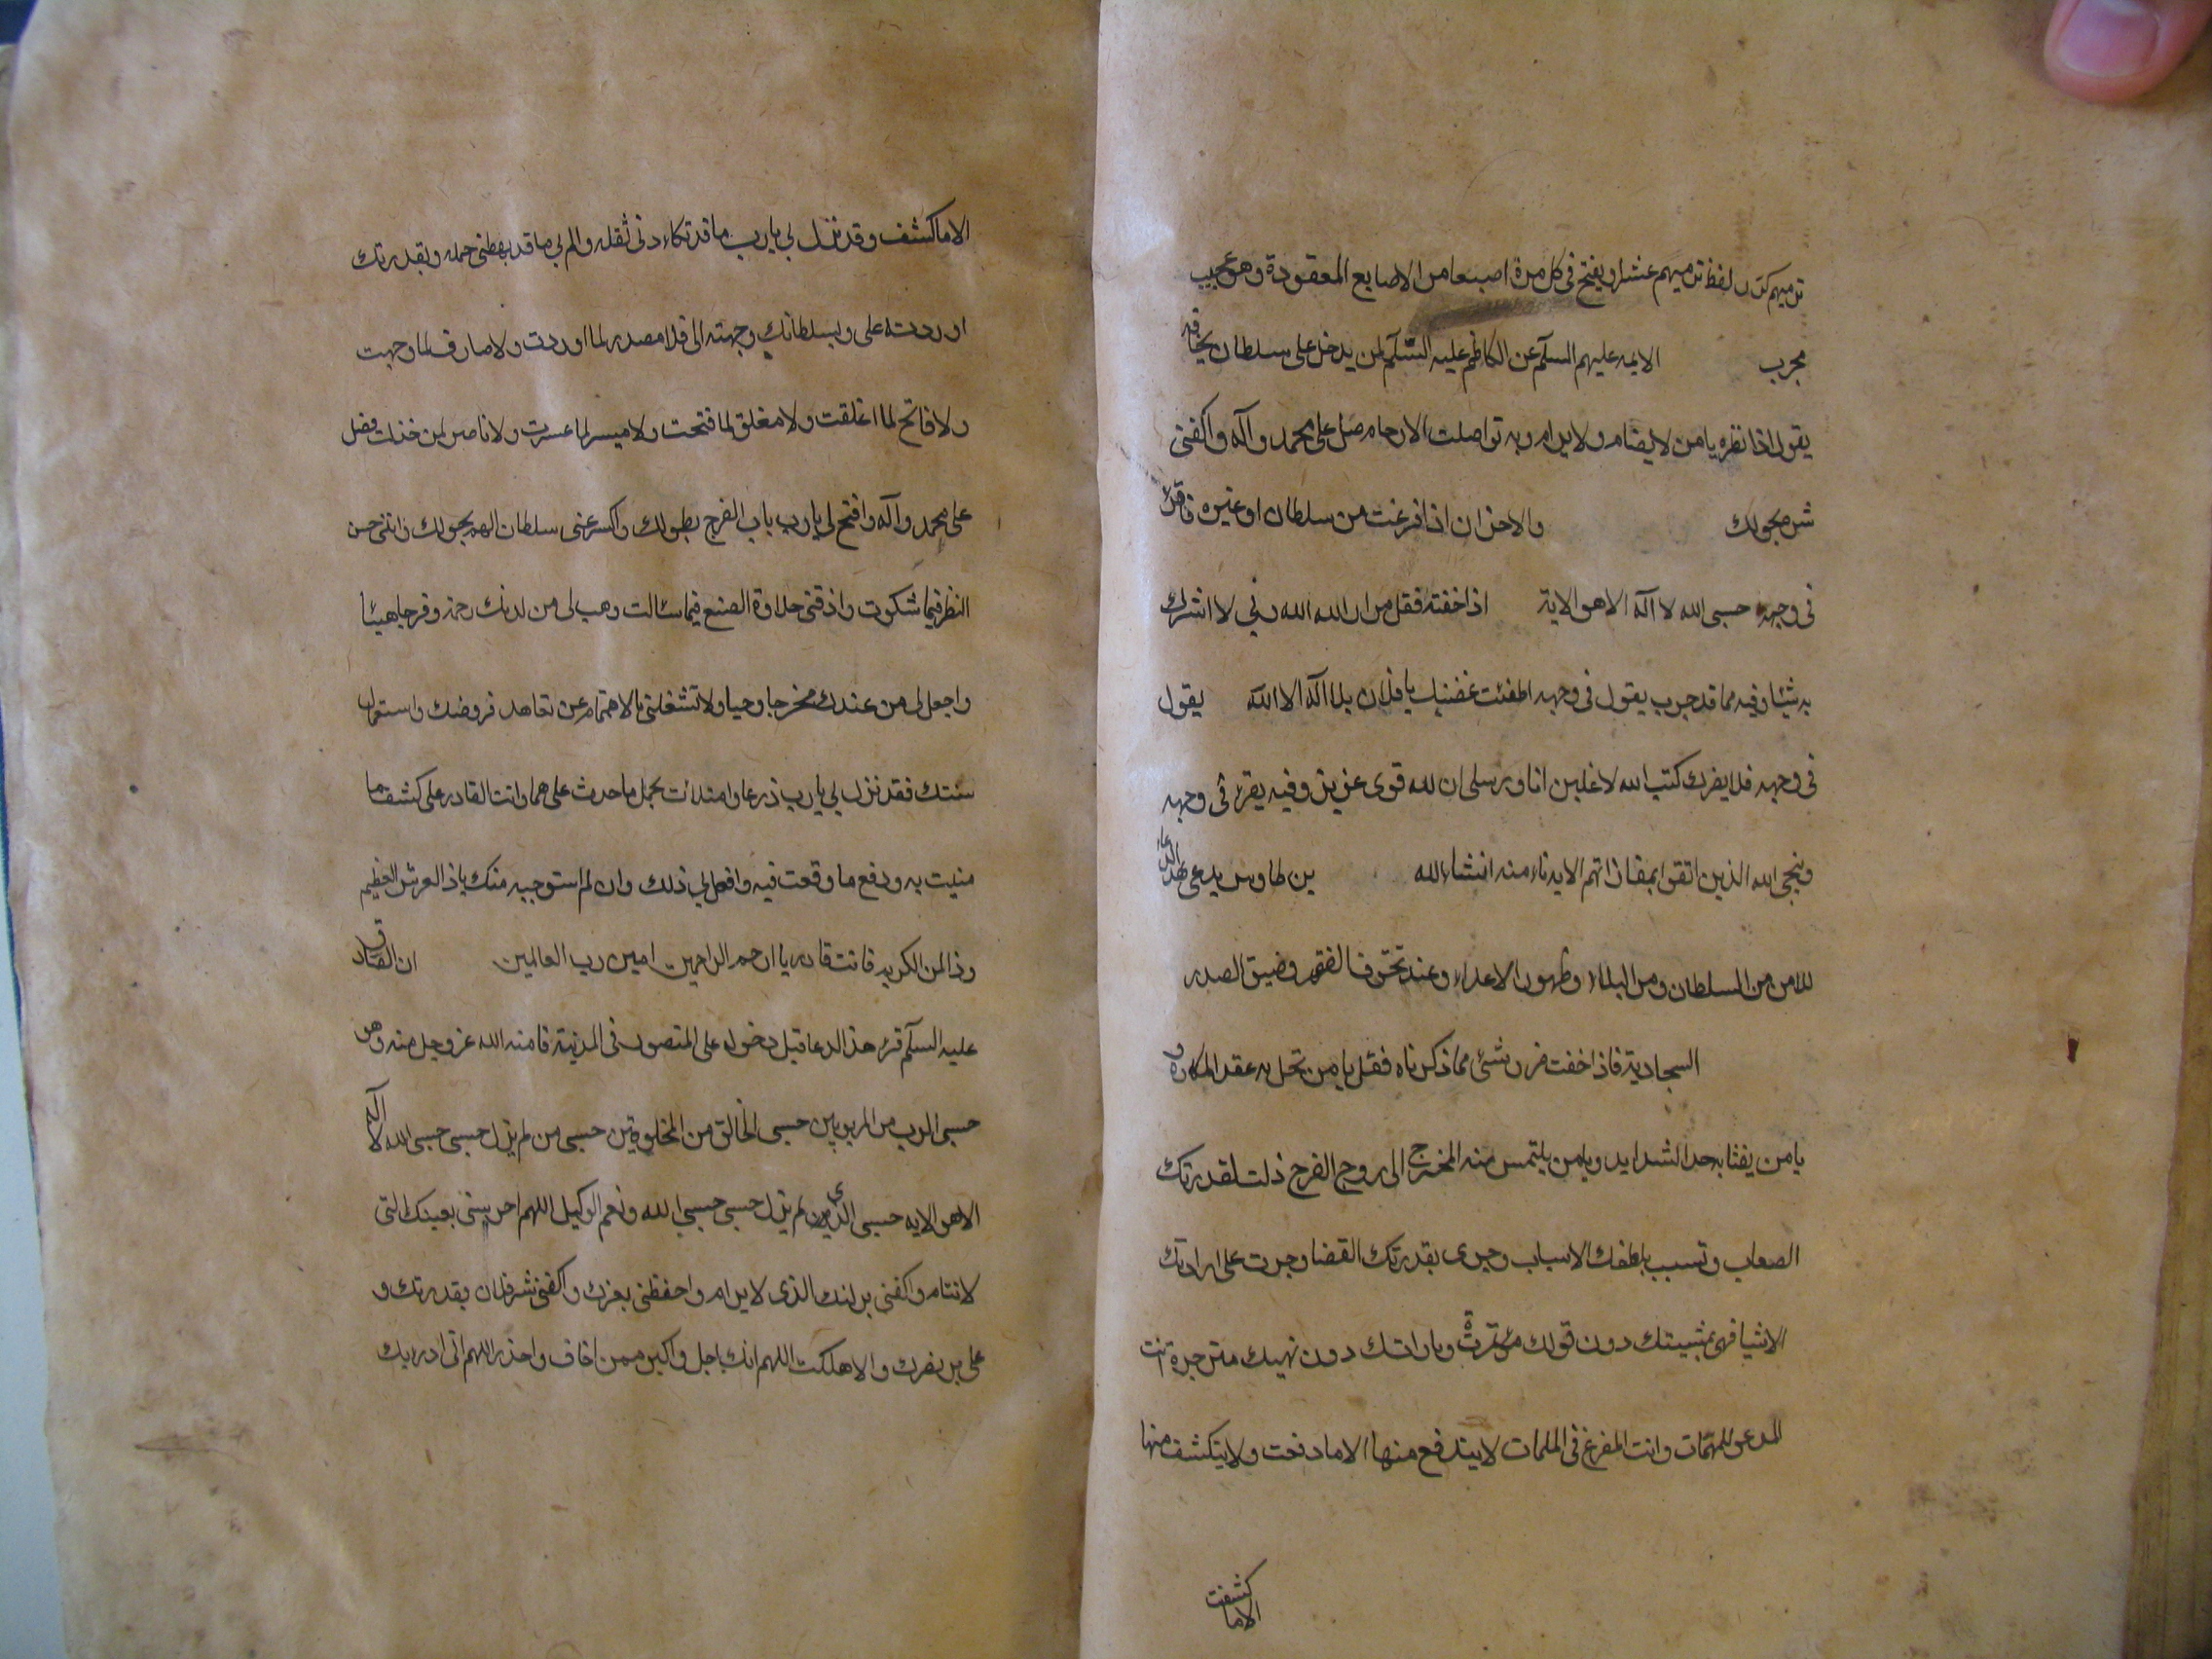 ترميهم كرر لفظ ترميهم عشرا ويفتح في كل مرة اصبعا من الاصابع المعقودة وهو عجيب
مجرب الايمه عليهم السلم عن الكاظم عليه السلم لمن يدخل على سلطان يخافه
يقول اذا نظره يا من لا يضام ولا يرام وبه تواصلت الارحام صل على محمد وآله واكفنى
شره بحولك والاحزان اذا فزعت من سلطان او غيره فاقرأ
فى وجهه حسبى الله لا اله الا هو الاية اذا خفته فقل مرارا الله الله ربي لا اشرك
به شيئا وفيه مما قد جرب يقول فى وجهه اطفئت غضبك يا فلان بلا اله الا الله يقول
فى وجهه فلا يضرك كتب الله لاغلبن انا ورسلى ان لله قوى عزيز وفيه يقرء فى وجهه
وينجى الله الذين اتقوا بمفازاتهم الاية تامنه انشاء الله بن طاوس يدعى بهذا الدعاء
للامن من السلطان ومن البلاء وظهور الاعداء وعند تخوف الفقر وضيق الصدر
السجادية فاذا خفت من شئ مما ذكرناه فقل يا من تحل به عقد المكاره و
يا من يفثا به حد الشدايد ويا من يلتمس منه المخرج الى روح الفرج ذلت لقدرتك
الصعاب وتسبب بلطفك الاسباب وجرى بقدرتك القضا وجرت على ارادتك
الاشيا فهى بمشيتك دون قولك مؤتمرة وبارادتك دون نهيك منزجرة انت
المدعو للمهمات وانت المفزع فى الملمات لا يندفع منها الا ما دفعت ولا يتكشف منها
الا ما كشفت
الا ما كشفت وقد نزل بي يارب ما قد تكاءدنى ثقله والم بي ما قد بهظنى حمله وبقدرتك
اوردته على وبسلطانك وجهته الى فلا مصدر لما اوردت ولا صارف لما وجهت
ولا فاتح لما اغلقت ولا مغلق لما فتحت ولا ميسر لما عسرت ولا ناصر لمن خذلت فصل
على محمد وآله وافتح لى يارب باب الفرج بطولك واكسر عنى سلطان الهم بحولك وانلنى حسن
النظر فيما شكوت واذقنى حلاوة الصنع فيما سئالت وهب لى من لدنك رحمة وفرجا هنيئا
واجعل لى من عندك مخرجا وحيا ولا تشغلنى بالاهتمام عن تعاهد فروضك واستعمال
سنتك فقد نزل بي يارب ذرعا وامتلات بحمل ما حدث على هما وانت القادر على كشف ما
منيت به ودفع ما وقعت فيه وافعل بي ذلك وان لم استوجبه منك ياذا العرش العظيم
وذا المن الكريم فانت قادر يا ارحم الراحمين امين رب العالمين ان الصادق
عليه السلم قرء هذا الدعا قبل دخوله على المنصور فى المدينة فامنه الله عز وجل منه وهو
حسبى الرب من المربوبين حسبى الخالق من المخلوقين حسبى من لم يزل حسبى حسبى الله لا اله
الا هو الايه حسبى الذى لم يزل حسبى حسبي الله ونعم الوكيل اللهم احرسنى بعينك التى
لا تنام واكفنى بركنك الذى لا يرام واحفظنى بعزك واكفنى شر فلان بقدرتك و
على بنصرك والا هلكت اللهم انك اجل واكبر ممن اخاف واحذر اللهم انى ادرء بك